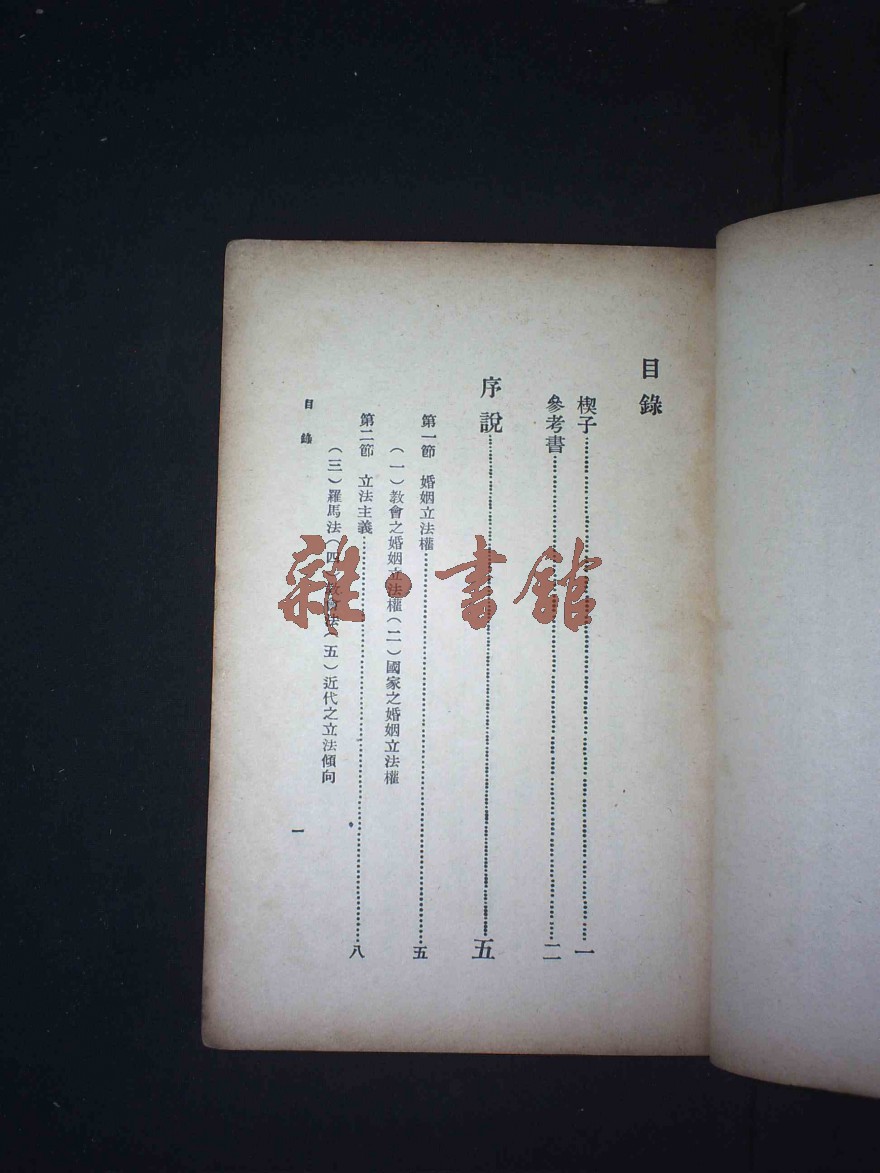 目錄
楔子…………一
參考書…………二
序說…………五
第一節 婚姻立法權…………五
（一）教會之婚姻立法權（二）國家之婚姻立法權
第二節 立法主義…………八
（三）羅馬法（四）教會法（五）近代之立法傾向
目錄
一
雜·書館